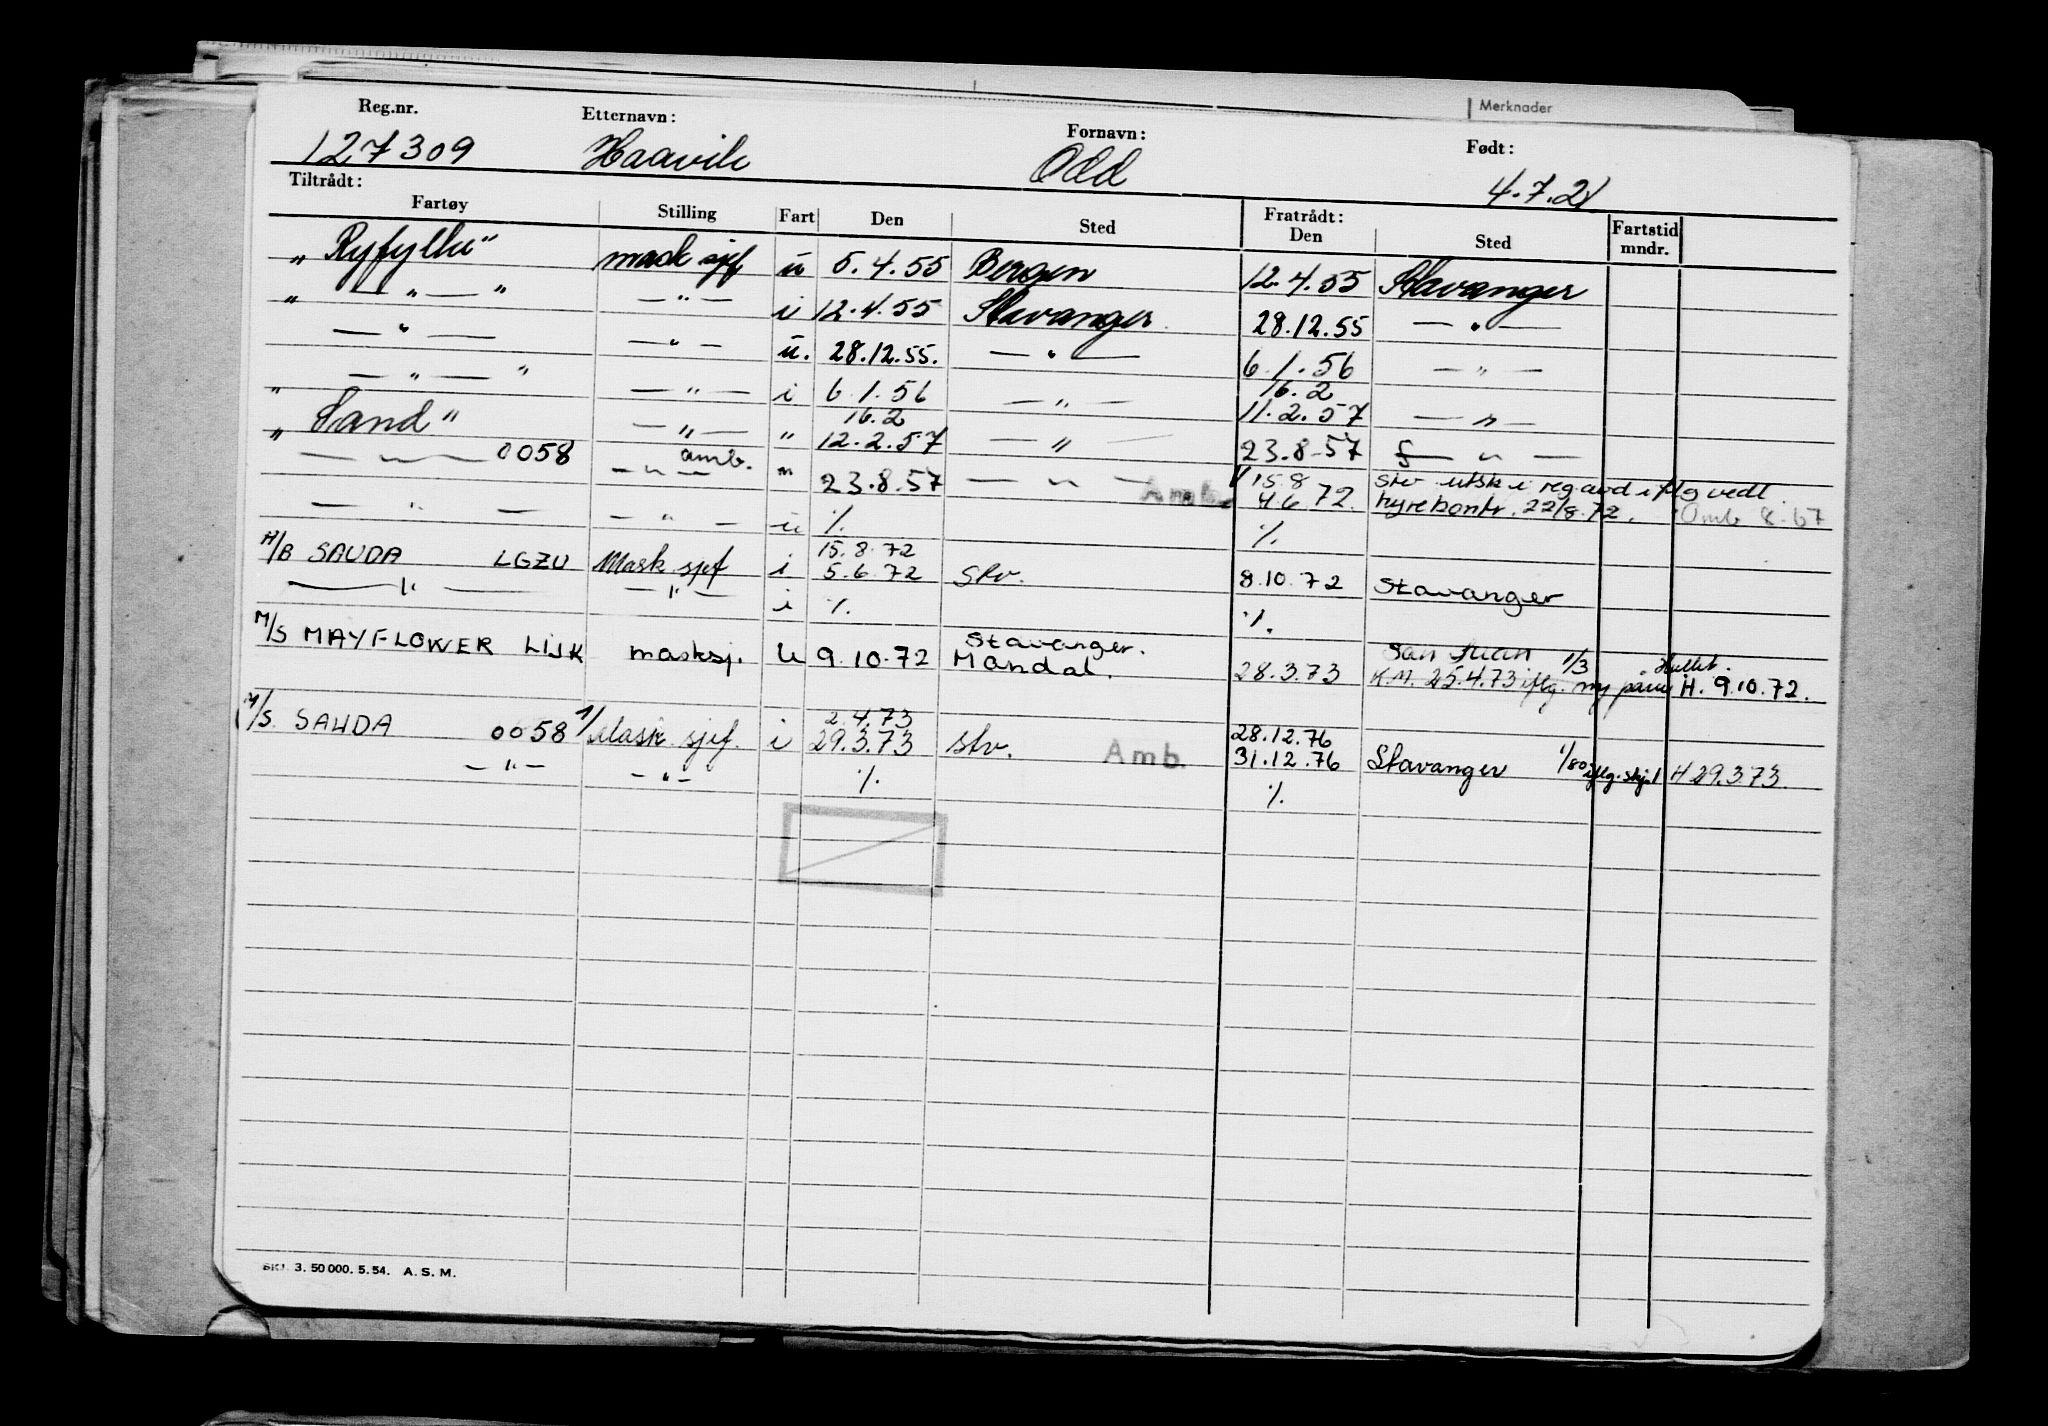 Merknader
Reg.nr. Etternavn: Fornavn: Født:
127309 Haavik Odd 4.7.21
Tiltrådt: Fratrådt:
Fartøy Stilling Fart Den Sted Den Sted Fartstid mndr.
„ Ryfylke" mask sjef u 5.4.55 Bergen 12.4.55 Stavanger
„ — „ — " — „ — i 12.4.55 Stavanger 28.12.55 — „ —
— „ — — „ — u. 28.12.55. — „ — 6.1.56 — „ —
— „ — " — „ — i 6.1.56 — „ — 16.2 11.2.57 — „ —
„ Sand" — „ — " 16.2 12.2.57 — „ — 23.8.57 — „ —
„ — „ — 0058 amb. — „ — " 23.8.57 — „ — 15.8 4.6.72. Stv utsk i reg avd iflg vedl.
hyrekontr. 22/8.72. Amb 8.67
— „ — — „ — u %. %.
M/S SAUDA LGZU Mask sjef i 15.8.72 5.6.72 Stv. 8.10.72 Stavanger
— „ — — „ — i %. %.
M/S MAYFLOWER LIJK masksj. u 9.10.72 Stavanger. Mandal. 28.3.73 San Juan 1/3
K.M. 25.4.73 iflg. ny H. 9.10.72.
M/S. SAUDA 0058 1/ Mask sjef. i 2.4.73 29.3.73 Stv. Amb. 28.12.76 31.12.76 Stavanger 1/80 iflg. skj. H 29.3.73.
— „ — — „ — %. %.
SKJ. 3. 50 000. 5. 54. A. S. M.